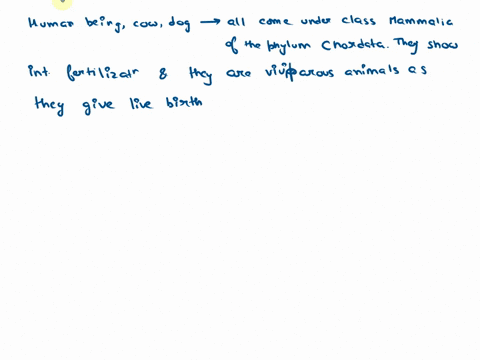 Human being, cow, dog → all come under class Mammalia
of the phylum Chordata. They show
int. fertilizatn & they are viviparous animals as
they give live birth